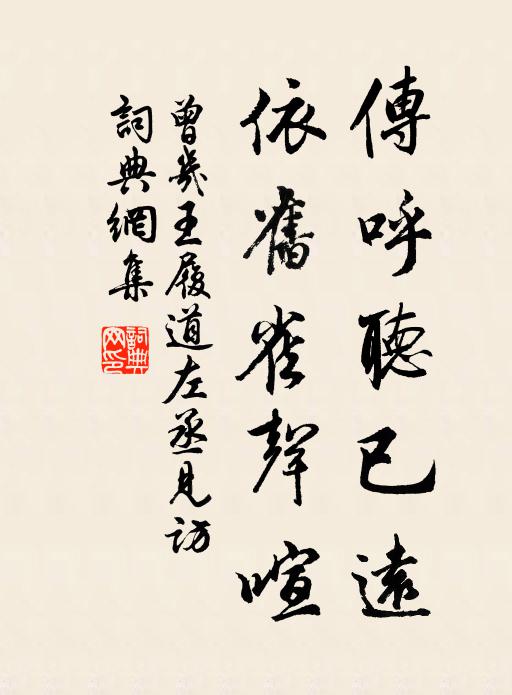 傳呼聽已遠
依舊雀聲喧
曾幾王履道左丞見訪
詞典網集
詞典網印